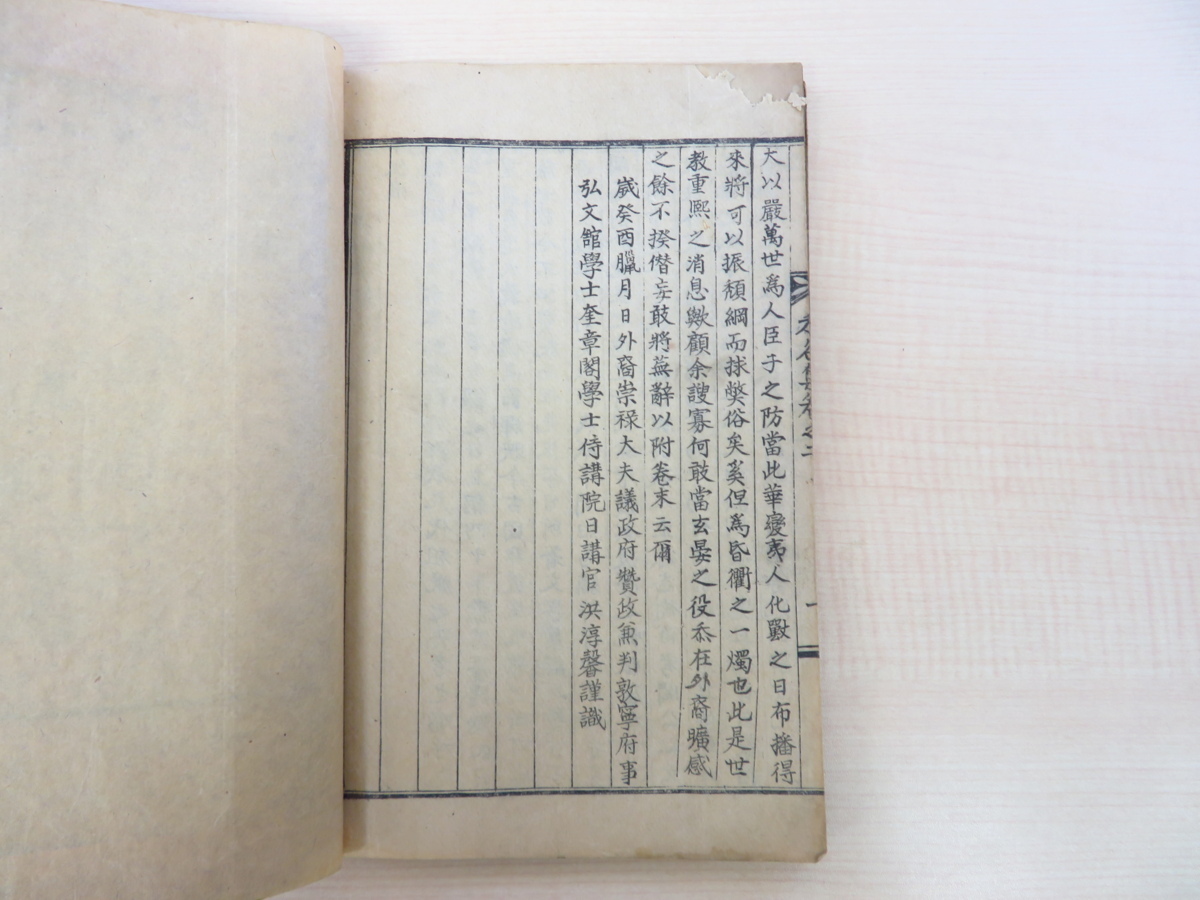 大以嚴萬世爲人臣子之防當此華變夷人化獸之日布播得
來將可以振頹綱而捄獘俗矣奚但爲昏衢之一燭也此是世
教重熙之消息歟顧余謏寡何敢當玄晏之役忝在外裔曠感
之餘不揆僭妄敢將蕪辭以附卷末云爾
歲癸酉臘月日外裔崇祿大夫議政府贊政兼判敦寧府事
弘文舘學士奎章閣學士侍講院日講官洪淳馨謹識